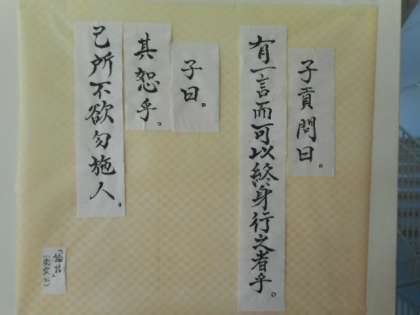 子貢問曰。
有一言而可以終身行之者乎。
子曰。
其恕乎。
己所不欲勿施人。